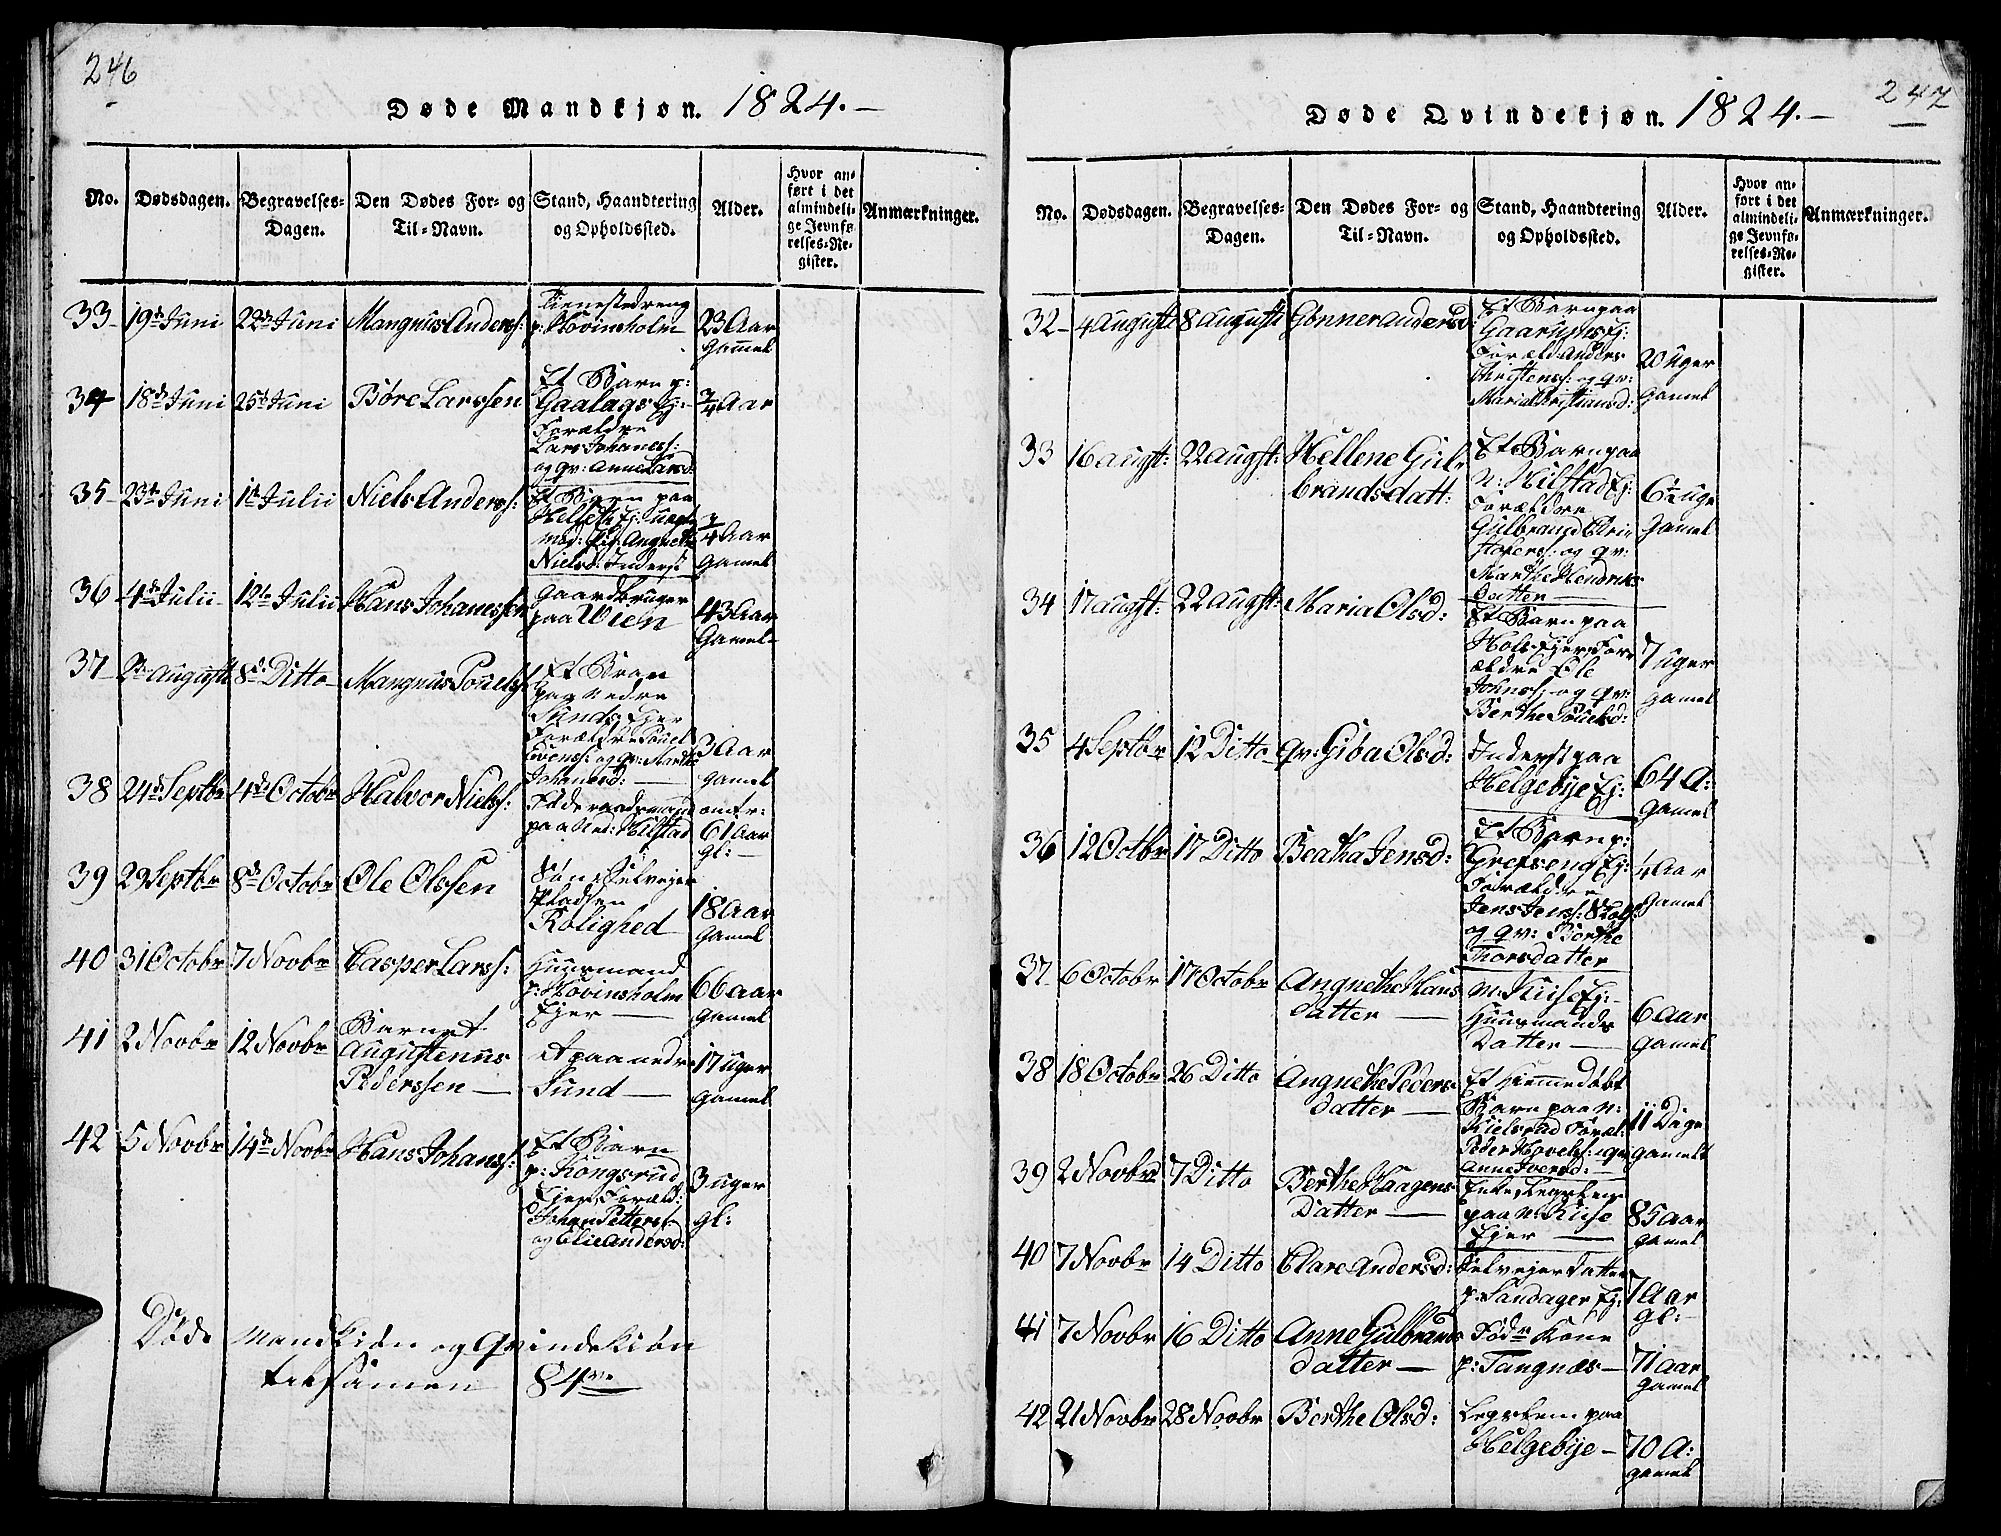 246
Døde Mandkjøn. 1824.
No. Dødsdagen. Begravelses-Dagen. Den Dødes For- og Til-Navn. Stand, Haandtering og Opholdssted. Alder. Hvor anført i det almindelige Jevnførelses-Register. Anmærkninger.
33 19de Juni 22de Juni Mangnus Anderss: Tienestedreng p: Hovinsholm 23 Aar Gamel
34 18de Juni 25de Juni Børe Larssen Et Barn p: Gaalaas Ej: Forældre Lars Johaness: og qv: Anne Larsd: 3/4 Aar
35 23de Juni 1te Julii Niels Anderss: Et Barn paa Helset Ej: med Pig: Angnethe Nielsd: Inderst 3/4 Aar Gamel
36 4de Julii 12te Julii Hans Johanessen Gaardbruger paa Wien 43 Aar Gamel
37 2de Augusti 8de Ditto Mangnus Pouels: Et Barn paa Nedre Sunds Ejer Forældre Pouel og qv: Marthe Johanesd: 3 Aar Gamel
38 24de Septbr 4de Octobr Halvor Niels: Føderaadsmand paa Ned: Hilstad omtr: 61 Aar gl:
39 29 Septbr 8de Octobr Ole Olssen Søn Selvejer Pladsen Rolighed 18 Aar Gamel
40 31 Octobr 7 Novbr Casper Larss: Huusmand p: Hovinsholm Ejer 66 Aar Gamel
41 2 Novbr 12 Novbr Barnet Augustenus Pederssen et paa nedre Sund 17 uger Gamel
42 5 Novbr 14de Novbr Hans Johanss: Et Barn p: Kongsrud Ejer Foræld: Johan Petterss: og Elie Andersd: 3 uger gl:
Døde Mandkiøn og Qvindekiøn
tilsamen 84
247
Døde Qvindekjøn. 1824.
No. Dødsdagen. Begravelses-Dagen. Den Dødes For- og Til-Navn. Stand, Haandtering og Opholdssted. Alder. Hvor anført i det almindelige Jevnførelses-Register. Anmærkninger.
32 4 Augusti 8 Augusti Gonner Andersd: Et Barn paa Ej: Foræld: Anders Christenss: og qv: Maria Christiansd: 20 uger Gamel
33 16 Augst: 22 Augst: Hellene Gulbrandsdatt: Et Barn paa N: Hilstad Ej: Forældre Gulbrand Christofers: og qv: Marthe Hendriksdatter 6 uge Gamel
34 17 Augst: 22 Augst: Maria Olsd: Et Barn paa Hols Ejer Forældre Ole Johns: og qv: Berthe Pouelsd: 7 uger Gamel
35 4 Septbr 12 Ditto qv: Giøa Olsd: Inderst paa Helgebye Ej: 64 A: Gamel
36 12 Octbr 17 Ditto Beatha Jensd: Et Barn p: Grefseng Ej: Forældre Jens Jenss: og qv: Berthe Thorsdatter 1/4 Aar Gamel
37 6 Octobr 17 Octobr Angnethe Hansdatter N: Kise Ej: Huusmands Datter 6 Aar Gamel
38 18 Octobr 26 Ditto Angnethe Pedersdatter Et Hiemmedøbt Barn paa N: Kielsrud Foræl: Peder Hovels: qv Anne Iversd: 11 Dage Gamelt
39 2 Novbr 7 Ditto Berthe Haagens Datter Enke Legslem paa N: Kise Ejer 85 Aar Gamel
40 7 Novbr 14 Ditto Clare Andersd: Selvejer Datter p: Sandager Ej: 7 Aar Gl:
41 7 Novbr 16 Ditto Anne Gulbrands datter Føder Kone p: Tangnæs 71 Aar Gamel
42 21 Novbr 28 Novbr Berthe Olsd: Legslem paa Helgebye 70 A: Gamel